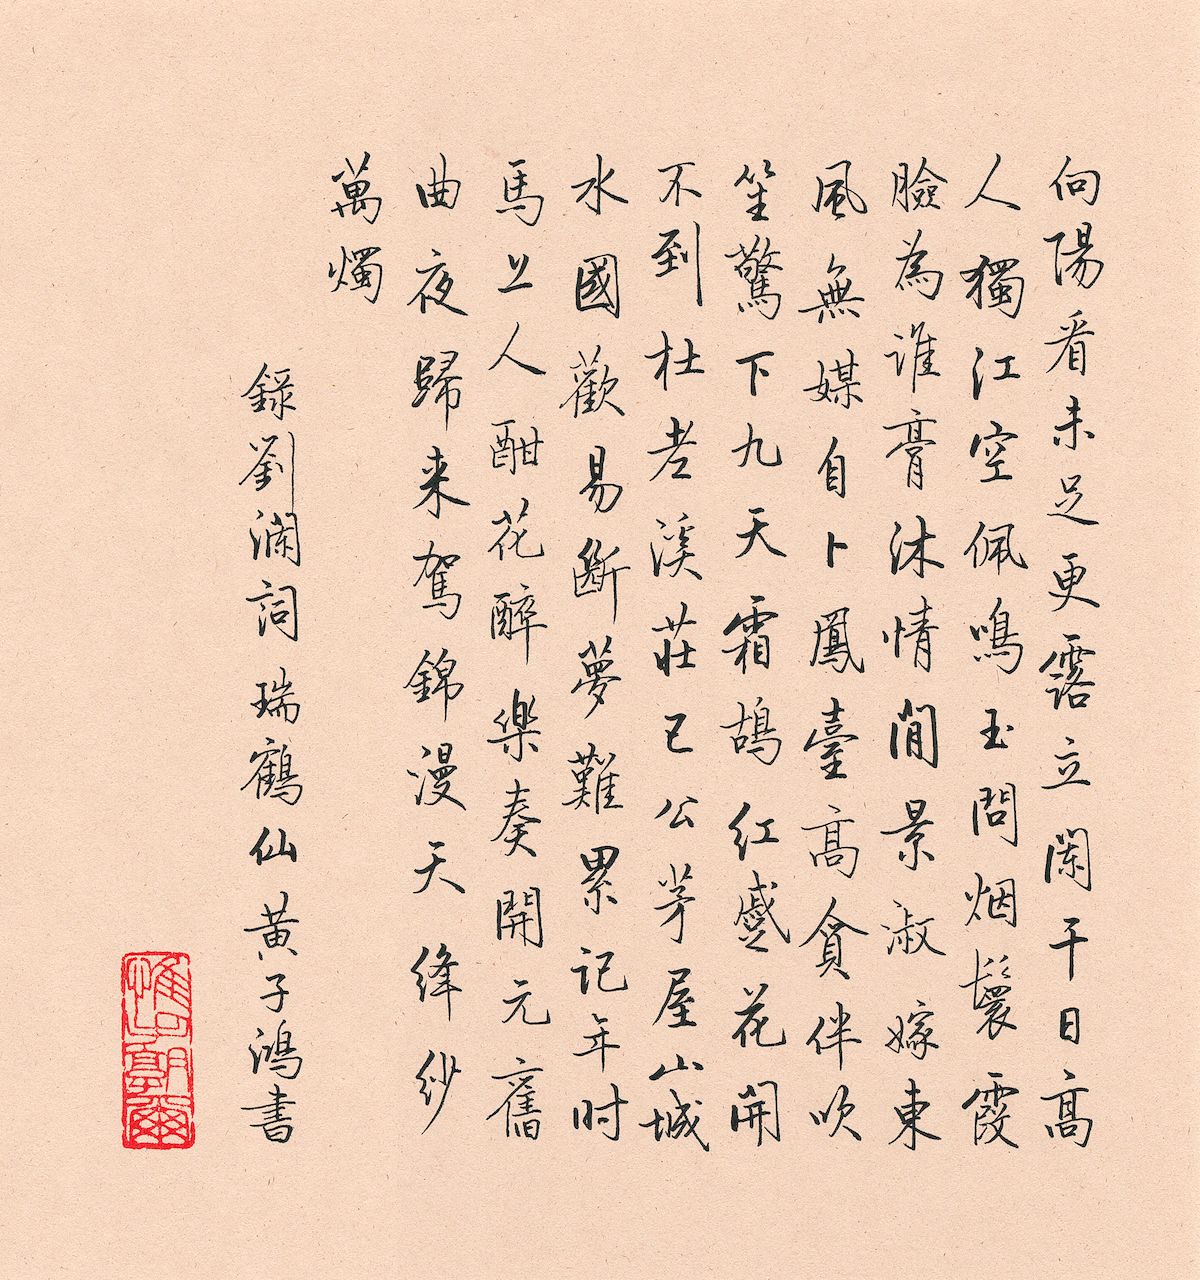 向陽看未足更露立闌干日高
人獨江空佩鳴玉問烟鬟霞
臉為誰膏沐情閒景淑嫁東
風無媒自卜鳳臺高貪伴吹
笙驚下九天霜鵠紅蹙花開
不到杜老溪莊已公茅屋山城
水國歡易斷夢難累記年时
馬上人酣花醉樂奏開元舊
曲夜歸来駕錦漫天絳紗
萬燭
錄劉瀾詞瑞鶴仙黄子鴻書